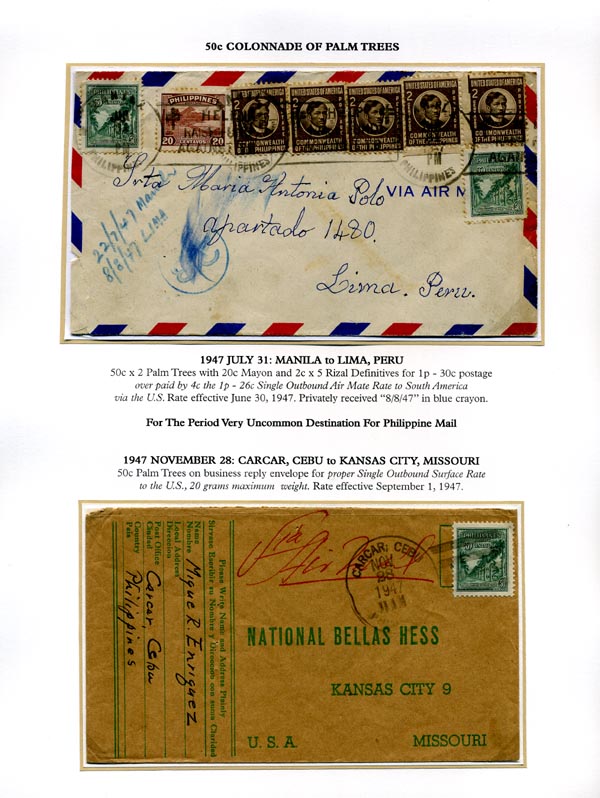 50c COLONNADE OF PALM TREES
PHILIPPINES
PHILIPPINES
20 CENTAVOS 20
UNITED STATES OF AMERICA
COMMONWEALTH
OF THE PHILIPPINES
UNITED STATES OF AMERICA
COMMONWEALTH
OF THE PHILIPPINES
UNITED STATES OF AMERICA
COMMONWEALTH
OF THE PHILIPPINES
UNITED STATES OF AMERICA
COMMONWEALTH
OF THE PHILIPPINES
UNITED STATES OF AMERICA
COMMONWEALTH
OF THE PHILIPPINES
PHILIPPINES
PM
VIA AIR M
Srta Maria Antonia Polo
Apartado 1480.
Lima, Peru.
22/7/47 Manila
8/8/47 LIMA
1947 JULY 31: MANILA to LIMA, PERU
50c x 2 Palm Trees with 20c Mayon and 2c x 5 Rizal Definitives for 1p - 30c postage
over paid by 4c the 1p - 26c Single Outbound Air Mate Rate to South America
via the U.S. Rate effective June 30, 1947. Privately received “8/8/47” in blue crayon.
For The Period Very Uncommon Destination For Philippine Mail
1947 NOVEMBER 28: CARCAR, CEBU to KANSAS CITY, MISSOURI
50c Palm Trees on business reply envelope for proper Single Outbound Surface Rate
to the U.S., 20 grams maximum weight. Rate effective September 1, 1947.
Please Write Name and Address Plainly
Sirvase Escribir su Nombre y Direccion con suma Claridad
Name
Nombre
Migue R. Enriquez
Local Address
Direccion
Post Office
Ciudad
Carcar, Cebu
Country
Pais
Philippines
Via Air Mail
CARCAR, CEBU
NOV
28
1947
PHILIPPINES
NATIONAL BELLAS HESS
KANSAS CITY 9
U. S. A. MISSOURI